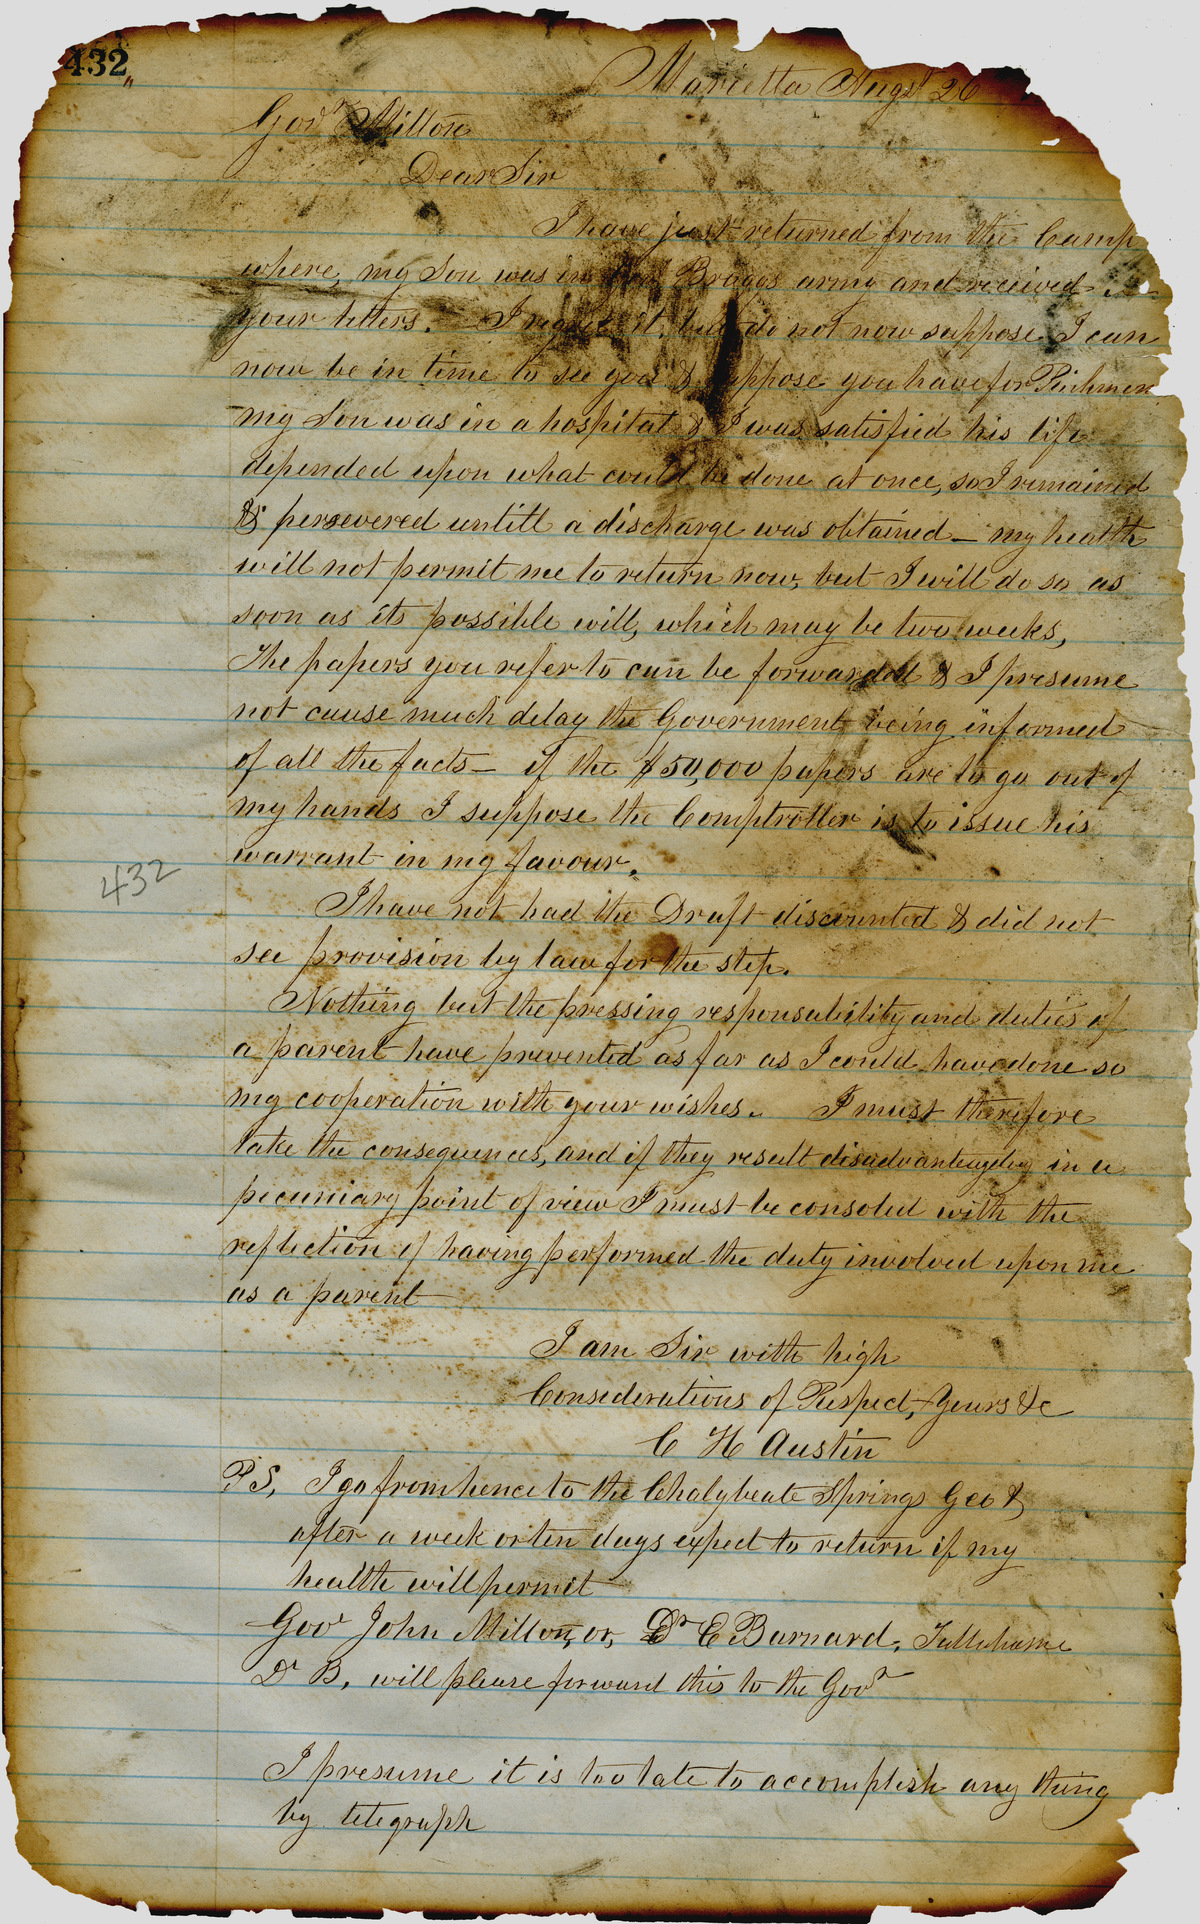 432
Marietta Augst 26
Govr Milton
Dear Sir
I have just returned from the Camp
where, my Son was in Genl Braggs army and received
your letters. I regret it, but do not now suppose I can
now be in time to see you & suppose you have for Richmon
my Son was in a hospital & I was satisfied his life
depended upon what could be done at once, so I remained
& persevered untill a discharge was obtained — my health
will not permit me to return now, but I will do so as
soon as its possible will, which may be two weeks,
The papers you refer to can be forwarded & I presume
not cause much delay the Government being informed
of all the facts — if the $50,000 papers are to go out of
my hands I suppose the Comptroller is to issue his
warrant in my favour.
432
I have not had the Draft discounted & did not
see provision by law for the step.
Nothing but the pressing responsability and duties of
a parent have prevented as far as I could have done so
my cooperation with your wishes. I must therefore
take the consequences, and if they result disadvantageously in a
pecuniary point of view I must be consoled with the
reflection of having performed the duty involved upon me
as a parent
I am Sir with high
Considerations of Respect, Yours &c
C H Austin
P S, I go from hence to the Chalybeate Springs Geo &
after a week or ten days expect to return if my
health will permit
Govr John Milton, or, Dr E Barnard, Tallahassee
Dr B, will please forward this to the Govr
I presume it is too late to accomplish any thing
by telegraph